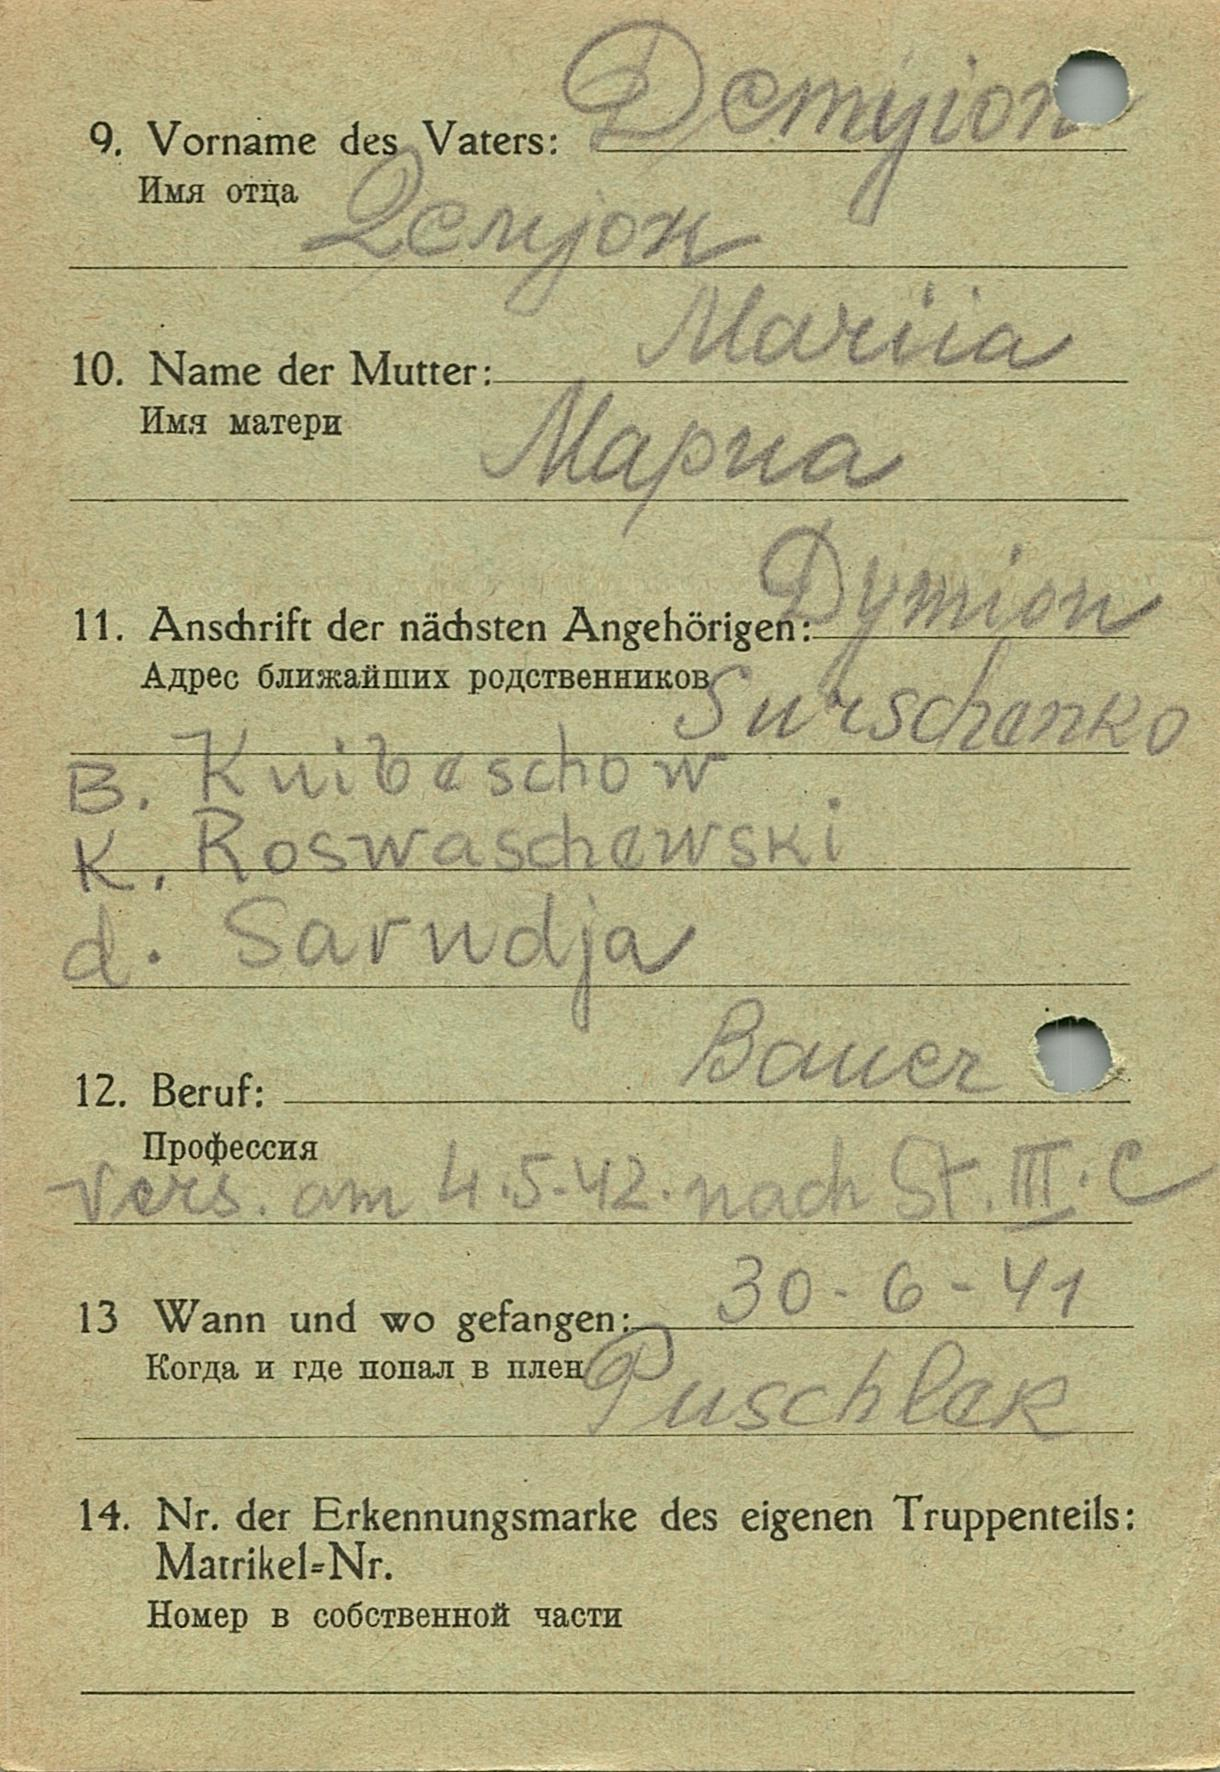 9. Vorname des Vaters: Demyion
Имя отца
Демјон
10. Name der Mutter: Mariia
Имя матери
Мариа
11. Anschrift der nächsten Angehörigen: Dymion
Адрес ближайших родственников Surschenko
B. Knibeschow
K. Roswaschewski
d. Sarudja
12. Beruf: Bauer
Профессия
vers. am 4.5.42. nach St. III. C
13 Wann und wo gefangen: 30-6-41
Когда и где попал в плен Puschlek
14. Nr. der Erkennungsmarke des eigenen Truppenteils:
Matrikel=Nr.
Номер в собственной части